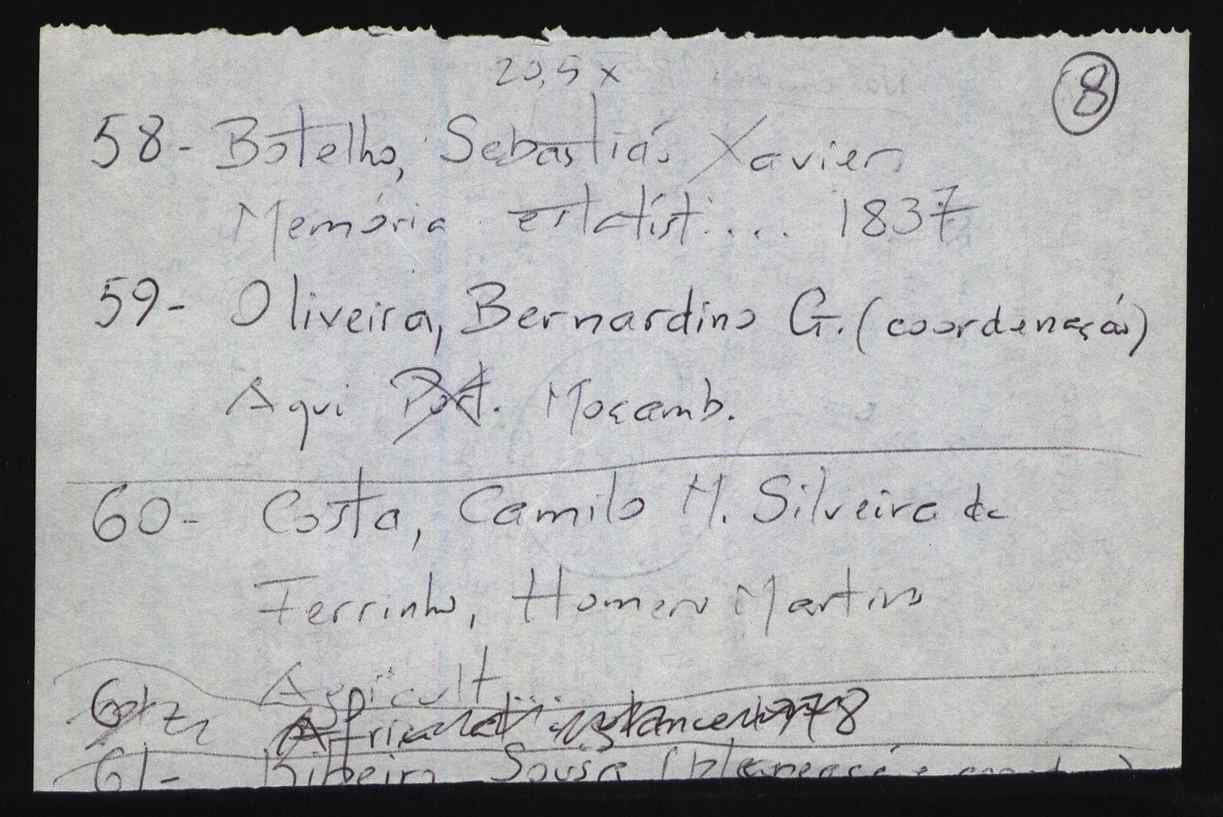 20,5 x
8
58- Botelho, Sebastião Xavier
Memória estatíst.... 1837
59- Oliveira, Bernardino G. (coordenação)
Aqui Port. Moçamb.
60- Costa, Camilo M. Silveira da
Ferrinho, Homero Martins
Agricult...
61- Ribeiro Sousa